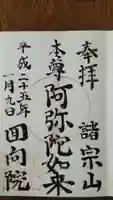 奉拝
諸宗山
本尊
阿弥陀如来
平成二十五年
一月九日
回向院